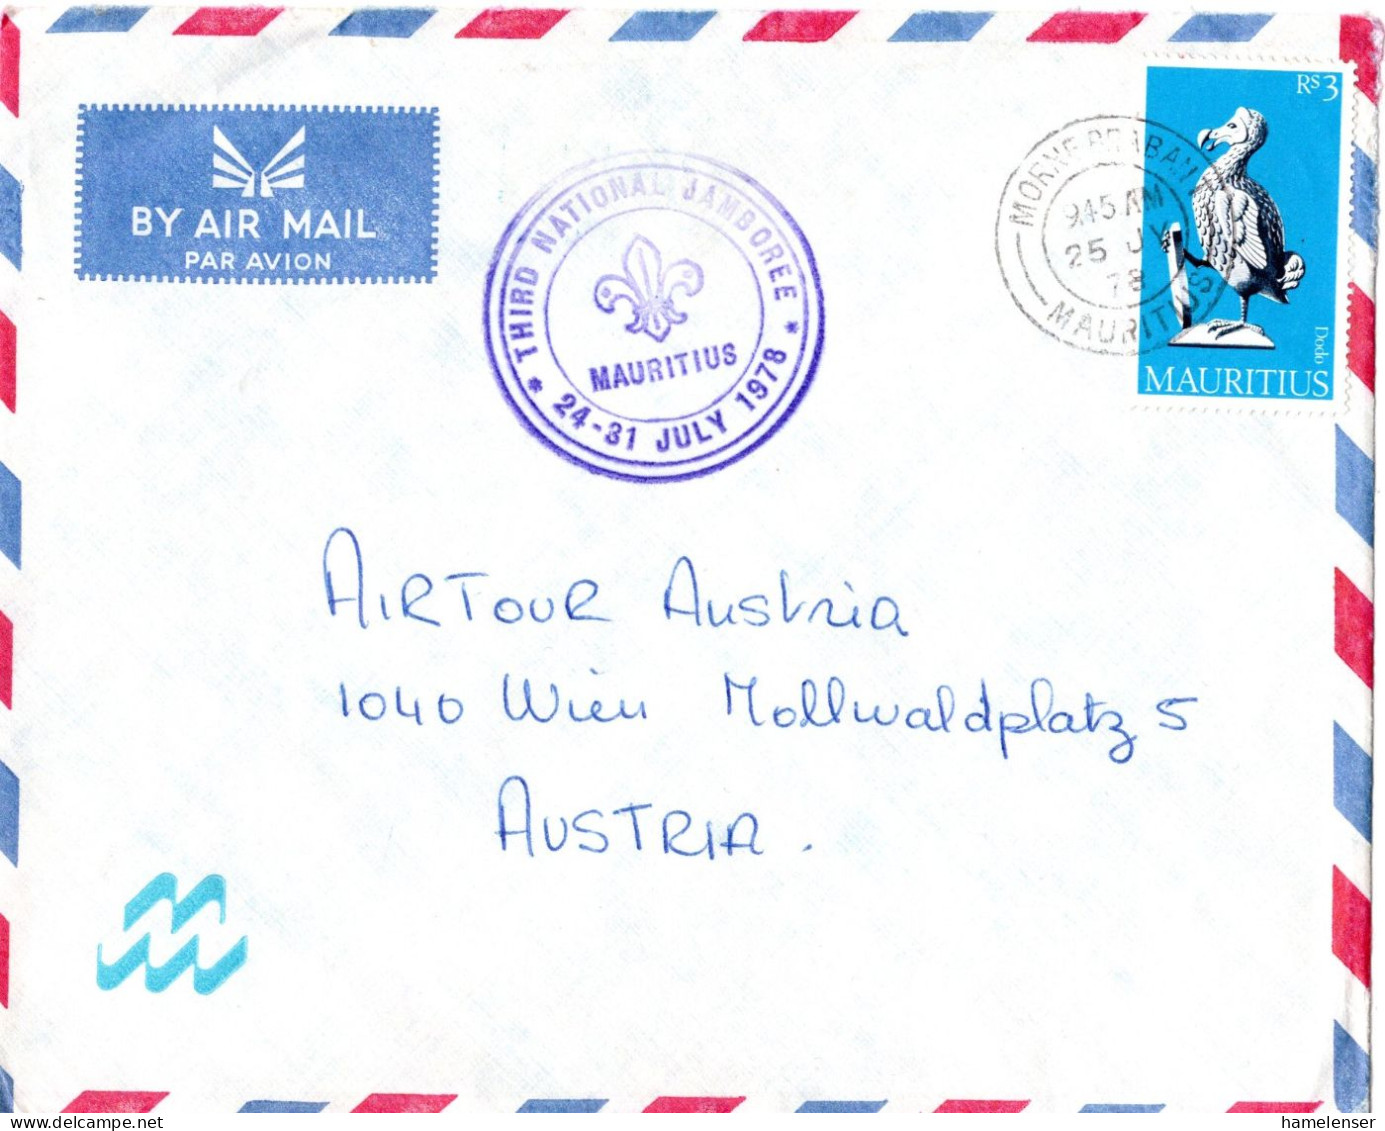 BY AIR MAIL
PAR AVION
* THIRD NATIONAL JAMBOREE *
MAURITIUS
24-31 JULY 1978
MORNE BRABANT
9.45 AM
25 JY
78
MAURITIUS
Rs3
Dodo
MAURITIUS
AIRTOUR Austria
1040 Wien Mollwaldplatz 5
AUSTRIA.
hamelenser